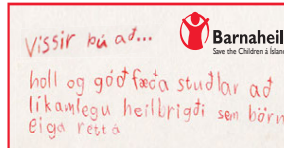 Vissir þú að...
Barnaheil
Save the Children á Íslan
holl og góð fæða stuðlar að
líkamlegu heilbrigði sem börn
eiga rett á